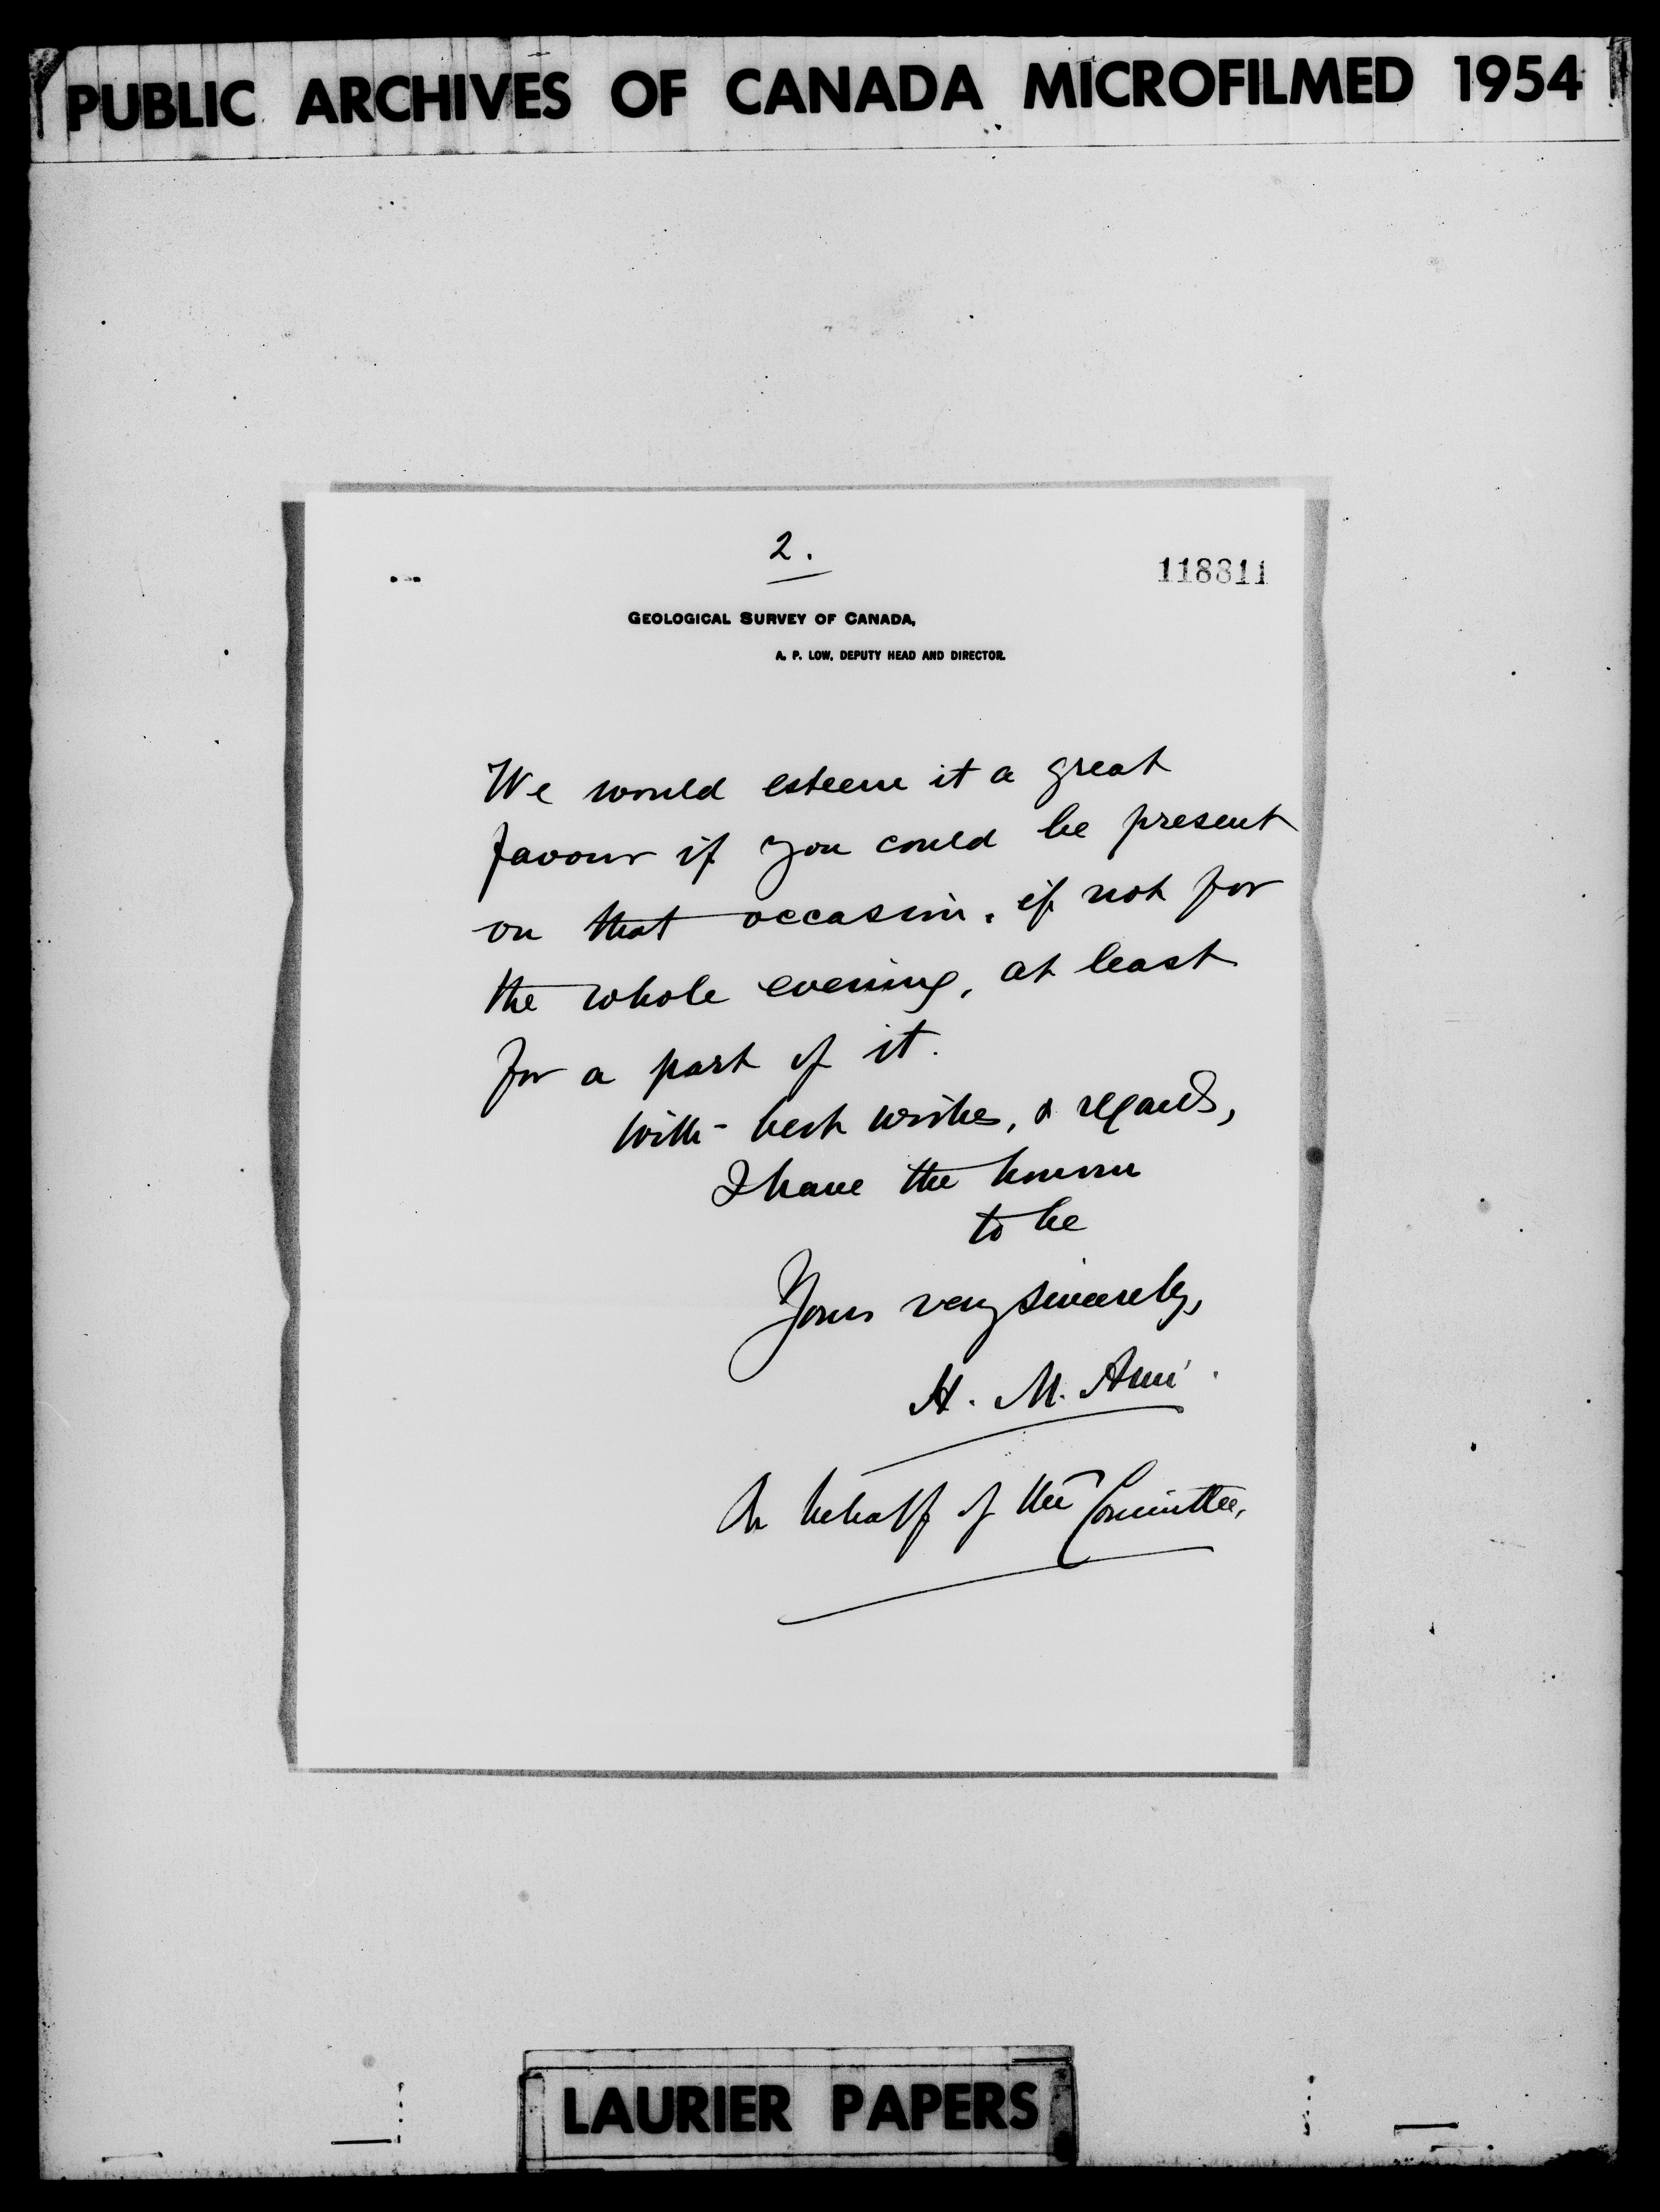 PUBLIC ARCHIVES OF CANADA MICROFILMED 1954
2.
118811
GEOLOGICAL SURVEY OF CANADA,
A. P. LOW, DEPUTY HEAD AND DIRECTOR.
We would esteem it a great
favour if you could be present
on that occasion, if not for
the whole evening, at least
for a part of it.
With best wishes, & regards,
I have the honour
to be
Yours very sincerely,
H. M. Ami.
On behalf of the Committee.
LAURIER PAPERS